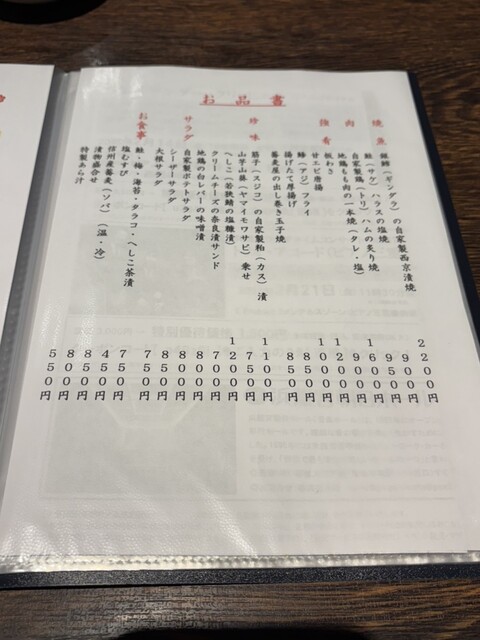 お品書
焼魚
銀鱈(ギンダラ)の自家製西京漬焼 2200円
鮭(サケ)ハラスの塩焼 900円
肉
自家製鶏(トリ)ハムの炙り焼 950円
地鶏もも肉の一本焼(タレ・塩) 1650円
強肴
板わさ 950円
甘エビ唐揚 1200円
鯵(アジ)フライ 1000円
揚げたて厚揚げ 850円
蕎麦屋の出し巻き玉子焼 850円
珍味
筋子(スジコ)の自家製粕(カス)漬 1100円
山芋山葵(ヤマイモワサビ)乗せ 750円
へしこ(若狭鯖の塩糠漬) 1200円
クリームチーズの奈良漬サンド 700円
地鶏の白レバーの味噌漬 800円
サラダ
自家製ポテトサラダ 800円
シーザーサラダ 850円
大根サラダ 750円
お食事
鮭・梅・海苔・タラコ・へしこ茶漬 750円
塩むすび 450円
信州産蕎麦(ソバ)(温・冷) 850円
漬物盛合せ 800円
特製あら汁 550円